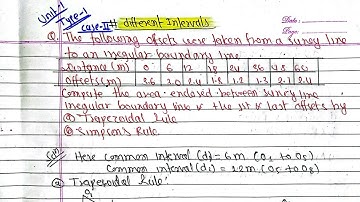 Unit-1
Type-1
Case-II # different Intervals
Date:
Page:
Q. The following offsets were taken from a survey line
to an irregular boundary line.
Distance (m) 0 6 12 18 24 36 48 60
Offsets (m) 2.6 3.0 2.4 1.8 1.2 1.3 2.1 2.4
Compute the area enclosed between survey line
irregular boundary line & the 1st & last offsets by
ⓐ Trapezoidal Rule
ⓑ Simpson's Rule
Here common interval (d) = 6m (O1 to O5)
Common interval (d1) = 12m (O5 to O8)
ⓐ Trapezoidal Rule: